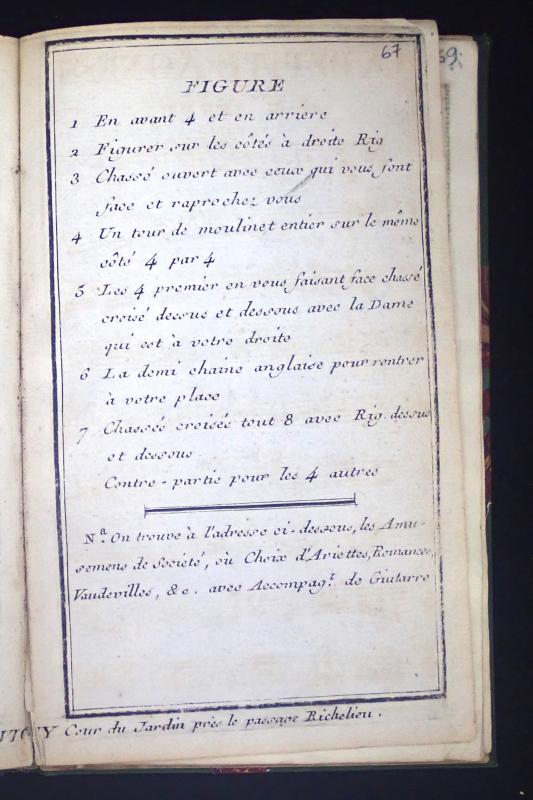 67
69.
FIGURE
1 En avant 4 et en arriere
2 Figurer sur les côtés à droite Rig
3 Chassé ouvert avec ceux qui vous font
face et raprochez vous
4 Un tour de moulinet entier sur le même
côté 4 par 4
5 Les 4 premier en vous faisant face chassé
croisé dessus et dessous avec la Dame
qui est à votre droite
6 La demi chaine anglaise pour rentrer
à votre place
7 Chassés croisés tout 8 avec Rig. dessus
et dessous
Contre-partie pour les 4 autres
Nª. On trouve à l'adresse ci-dessous, les Amu-
semens de Societé, où Choix d'Ariettes, Romances,
Vaudevilles, &c. avec Accompagt. de Giutarre
Cour du Jardin près le passage Richelieu.